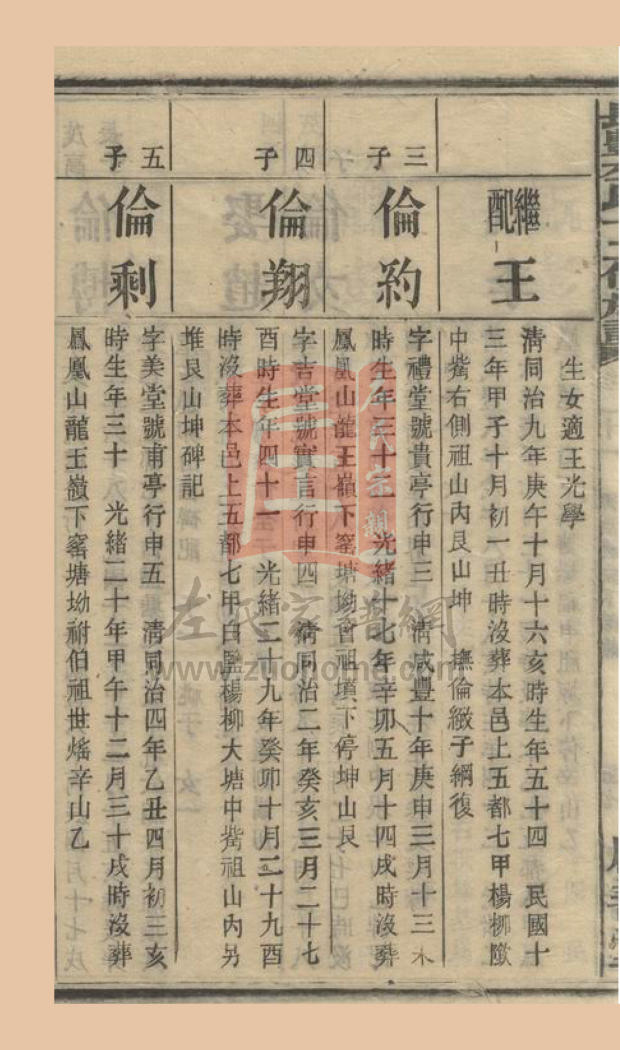 生女適王光學
繼配王
清同治九年庚午十月十六亥時生年五十四 民國十
三年甲子十月初一丑時沒葬本邑上五都七甲楊柳
中觜右側祖山內艮山坤 撫倫緻子綱復
三子
倫約
字禮堂號貴亭行申三 清咸豐十年庚申三月十三
時生年三十二 光緒十七年辛卯五月十四戌時沒葬
鳳凰山龍王嶺下窰塘坳會祖墳下停坤山艮
四子
倫翔
字吉堂號實言行申四 清同治二年癸亥三月二十七
酉時生年四十一 光緒二十九年癸卯十月二十九酉
時沒葬本邑上五都七甲白鹽楊柳大塘中觜祖山內另
堆艮山坤碑記
五子
倫剩
字美堂號甫亭行申五 清同治四年乙丑四月初三亥
時生年三十 光緒二十年甲午十二月三十戌時沒葬
鳳凰山龍王嶺下窰塘坳祔伯祖世燔辛山乙
左氏家譜網
www.zuohome.com